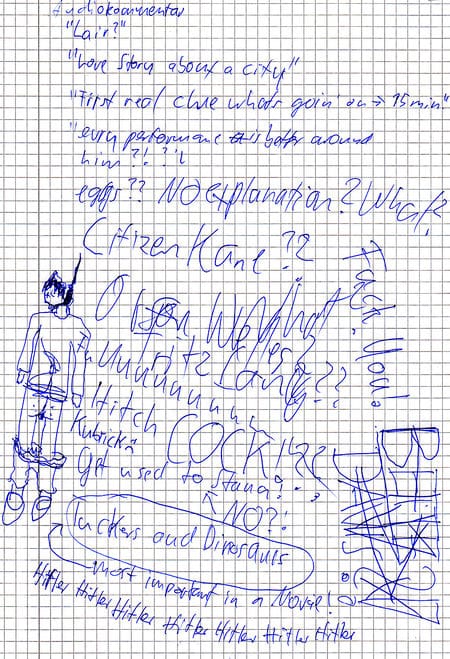 Audiokommentar
"Lair?"
"Love Story about a city"
"First real clue whats goin' on → 15 min"
"evry performance is better around
him?!??"
eggs?? No explanation? What?
Citizen Kane??
Fuck You!
Fritz Lang??
Hitch COCK!??
Kubrick
Get used to
NO?!
Fuckers and Dinosaurs
most important in a Movie!
Hitler Hitler Hitler Hitler Hitler Hitler Hitler